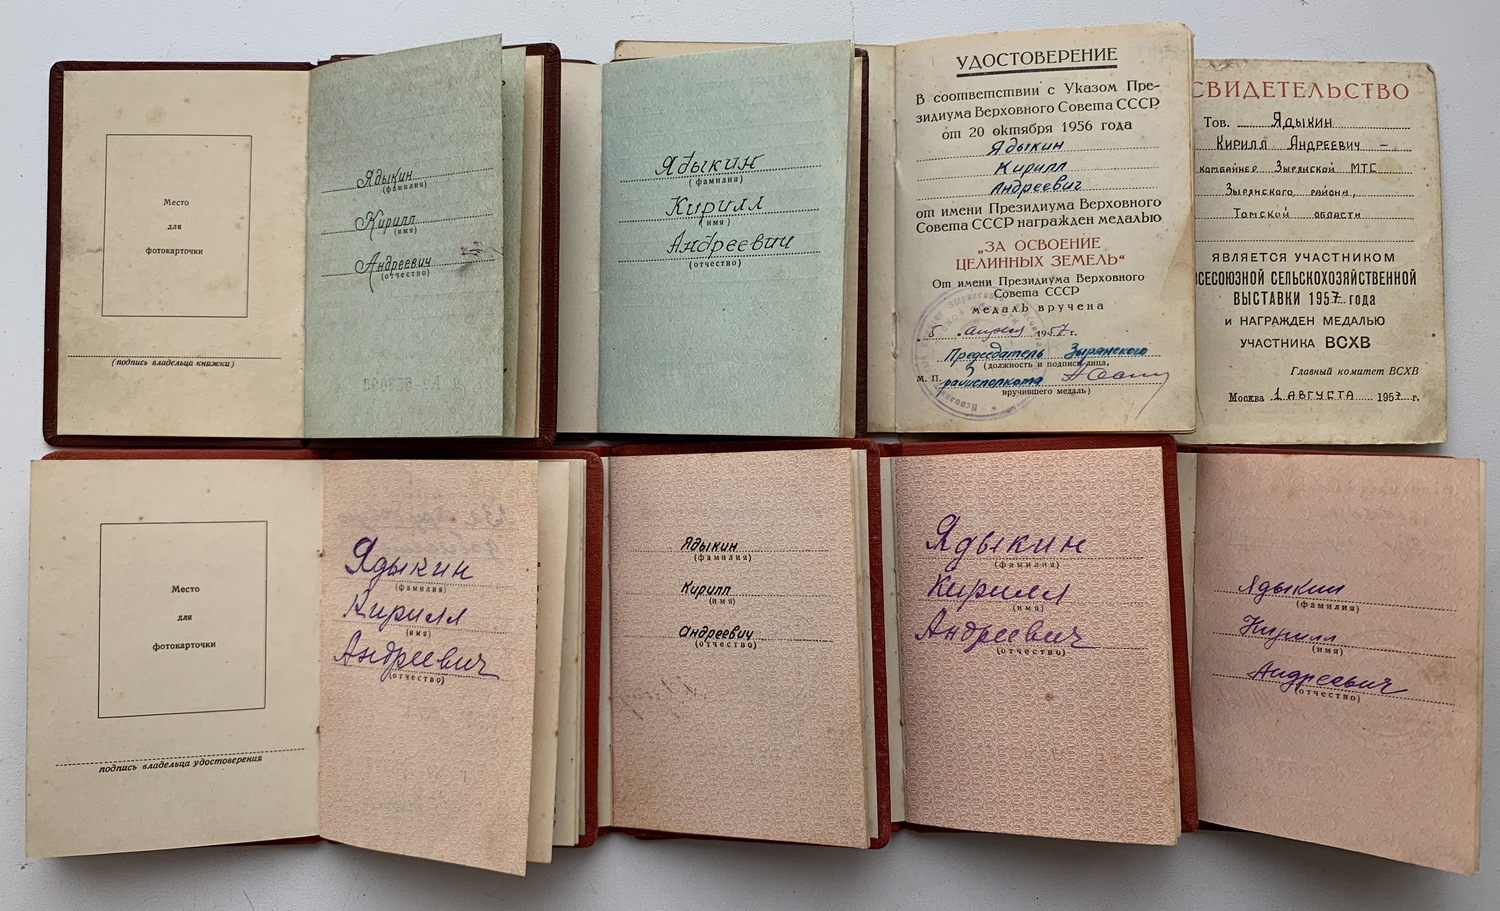 Место
для
фотокарточки
(подпись владельца книжки)
Ядыкин
(фамилия)
Кирилл
(имя)
Андреевич
(отчество)
Ядыкин
(фамилия)
Кирилл
(имя)
Андреевич
(отчество)
УДОСТОВЕРЕНИЕ
В соответствии с Указом Пре-
зидиума Верховного Совета СССР
от 20 октября 1956 года
Ядыкин
Кирилл
Андреевич
от имени Президиума Верховного
Совета СССР награжден медалью
„ЗА ОСВОЕНИЕ
ЦЕЛИННЫХ ЗЕМЕЛЬ“
От имени Президиума Верховного
Совета СССР
медаль вручена
„5„ апреля 1957 г.
Председатель Зырянского
(должность и подпись лица,
М. П. райисполкома
вручившего медаль)
СВИДЕТЕЛЬСТВО
Тов. Ядыкин
Кирилл Андреевич –
комбайнер Зырянской МТС
Зырянского района,
Томской области
ЯВЛЯЕТСЯ УЧАСТНИКОМ
ВСЕСОЮЗНОЙ СЕЛЬСКОХОЗЯЙСТВЕННОЙ
ВЫСТАВКИ 1957 года
и НАГРАЖДЕН МЕДАЛЬЮ
УЧАСТНИКА ВСХВ
Главный комитет ВСХВ
Москва 1 АВГУСТА 1957 г.
Место
для
фотокарточки
подпись владельца удостоверения
Ядыкин
(фамилия)
Кирилл
(имя)
Андреевич
(отчество)
Ядыкин
(фамилия)
Кирилл
(имя)
Андреевич
(отчество)
Ядыкин
(фамилия)
Кирилл
(имя)
Андреевич
(отчество)
Ядыкин
(фамилия)
Кирилл
(имя)
Андреевич
(отчество)